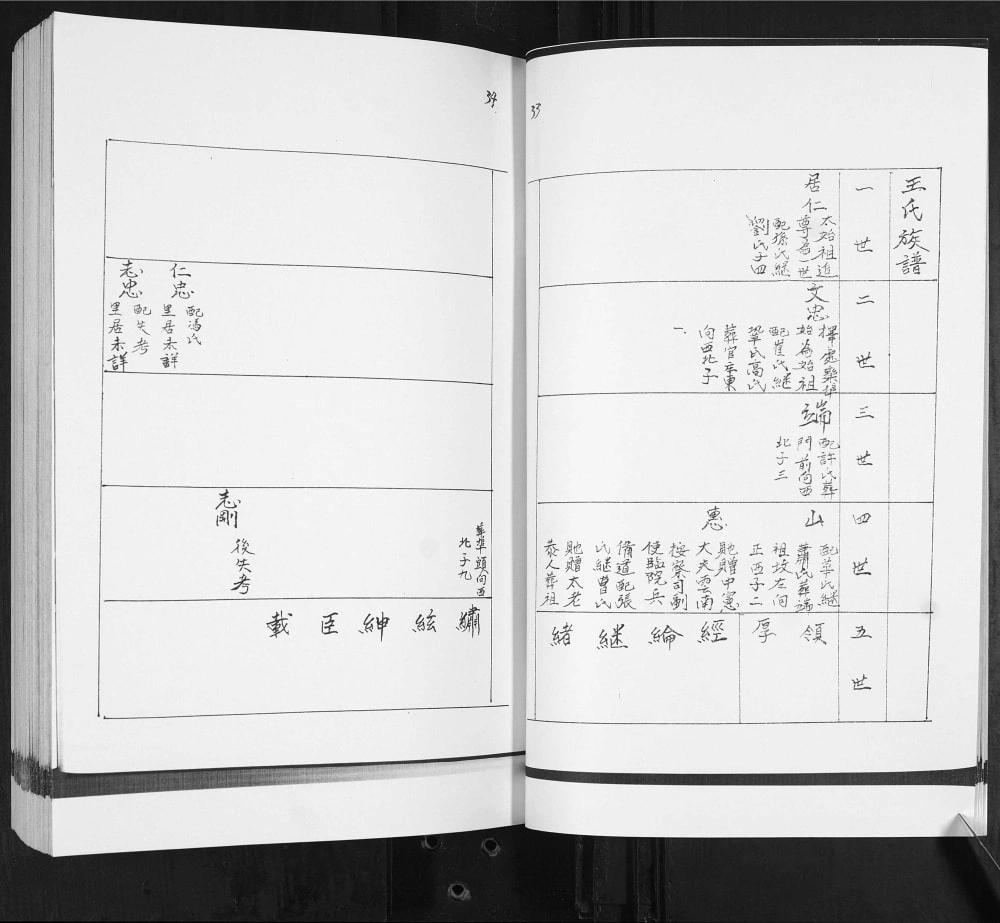 33
王氏族譜
一世
居仁
太始祖追
尊為一世
配孫氏継
劉氏子四
二世
文忠
擇處樂
始為始祖
配崔氏継
鞏氏高氏
葬官庄東
向西北子
一
三世
端
配許氏葬
門前向西
北子三
四世
山
配華氏継
蕭氏葬端
祖坟左向
正西子二
惠
貤贈中憲
大夫雲南
按察司副
使臨院兵
備道配張
氏継曹氏
貤贈太老
恭人葬祖
五世
領
厚
經
綸
継
緒
34
葬準頭向西
北子九
繡
絃
紳
臣
載
仁忠
配馮氏
里居未詳
志忠
配失考
里居未詳
志剛
後失考